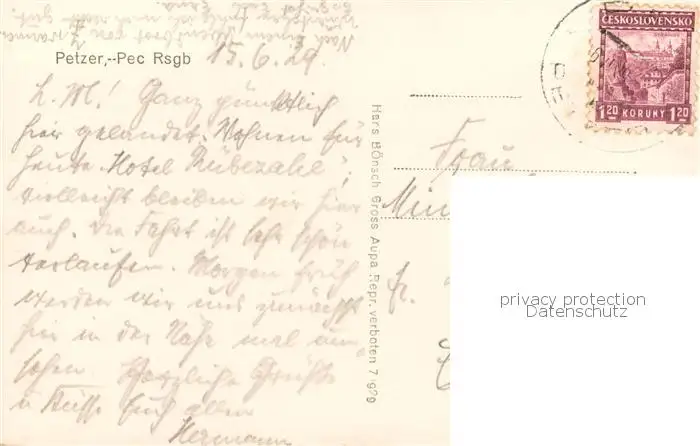 Petzer,--Pec Rsgb
15.6.29.
L. M.! Ganz pünktlich
hier gelandet. Wohnen für
heute Hotel Rübezahl;
vielleicht bleiben wir hier
auch. Die Fahrt ist sehr schön
verlaufen. Morgen früh
werden wir uns zunächst
hier in der Nähe mal um
sehen. Herzliche Grüße
u Küsse Euch allen
Hermann
Hans Bönsch Gross Aupa Repr. verboten 7 929
ČESKOSLOVENSKO
1.20 KORUNY 1.20
Frau
privacy protection
Datenschutz